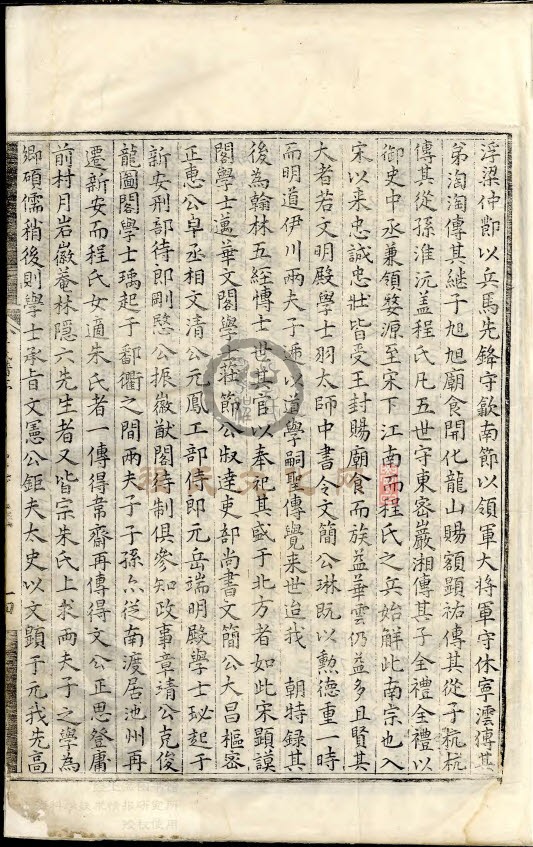 浮梁仲節以兵馬先鋒守歙南節以領軍大將軍守休寧澐傳其
弟淘淘傳其繼子旭旭廟食開化龍山賜額顯祐傳其從子杭杭
傳其從孫淮沅盖程氏凡五世守東密巖湘傳其子全禮全禮以
御史中丞兼領婺源至宋下江南而程氏之兵始觧此南宗也入
宋以来忠誠忠壯皆受王封賜廟食而族益華雲仍益多且賢其
大者若文明殿學士羽太師中書令文簡公琳既以勲德重一時
而明道伊川兩夫子遂以道學嗣聖傳覺来世迨我 朝特録其
後為翰林五經愽士世其官以奉祀其盛于北方者如此宋顯謨
閣學士邁華文閣學士莊節公叔達吏部尚書文簡公大昌樞密
正惠公卓丞相文清公元鳳工部侍郎元岳端明殿學士珌起于
新安刑部待郎剛愍公振徽猷閣待制俱參知政事章靖公克俊
龍圖閣學士瑀起于鄱衢之間兩夫子子孫亦從南渡居池州再
遷新安而程氏女適朱氏者一傳得韋齋再傳得文公正思登庸
前村月岩徽菴林隱六先生者又皆宗朱氏上求兩夫子之學為
鄉碩儒稍後則學士承旨文憲公鉅夫太史以文顯于元我先高